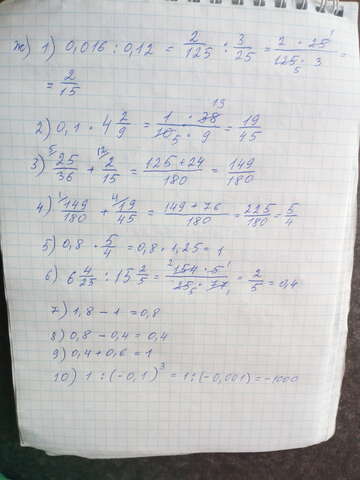 ж) 1) 0,016 : 0,12 = 2/125 : 3/25 = 2 · 25¹/125₅ · 3 =
= 2/15
2) 0,1 · 4 2/9 = 1 · 38¹⁹/10₅ · 9 = 19/45
3) ⁵⁾25/36 + ¹²⁾2/15 = 125+24/180 = 149/180
4) ¹⁾149/180 + ⁴⁾19/45 = 149+76/180 = 225/180 = 5/4
5) 0,8 · 5/4 = 0,8 · 1,25 = 1
6) 6 4/25 : 15 2/5 = ²154 · 5¹/25₅ · 77₁ = 2/5 = 0,4
7) 1,8 − 1 = 0,8
8) 0,8 − 0,4 = 0,4
9) 0,4 + 0,6 = 1
10) 1 : (−0,1)³ = 1 : (−0,001) = −1000